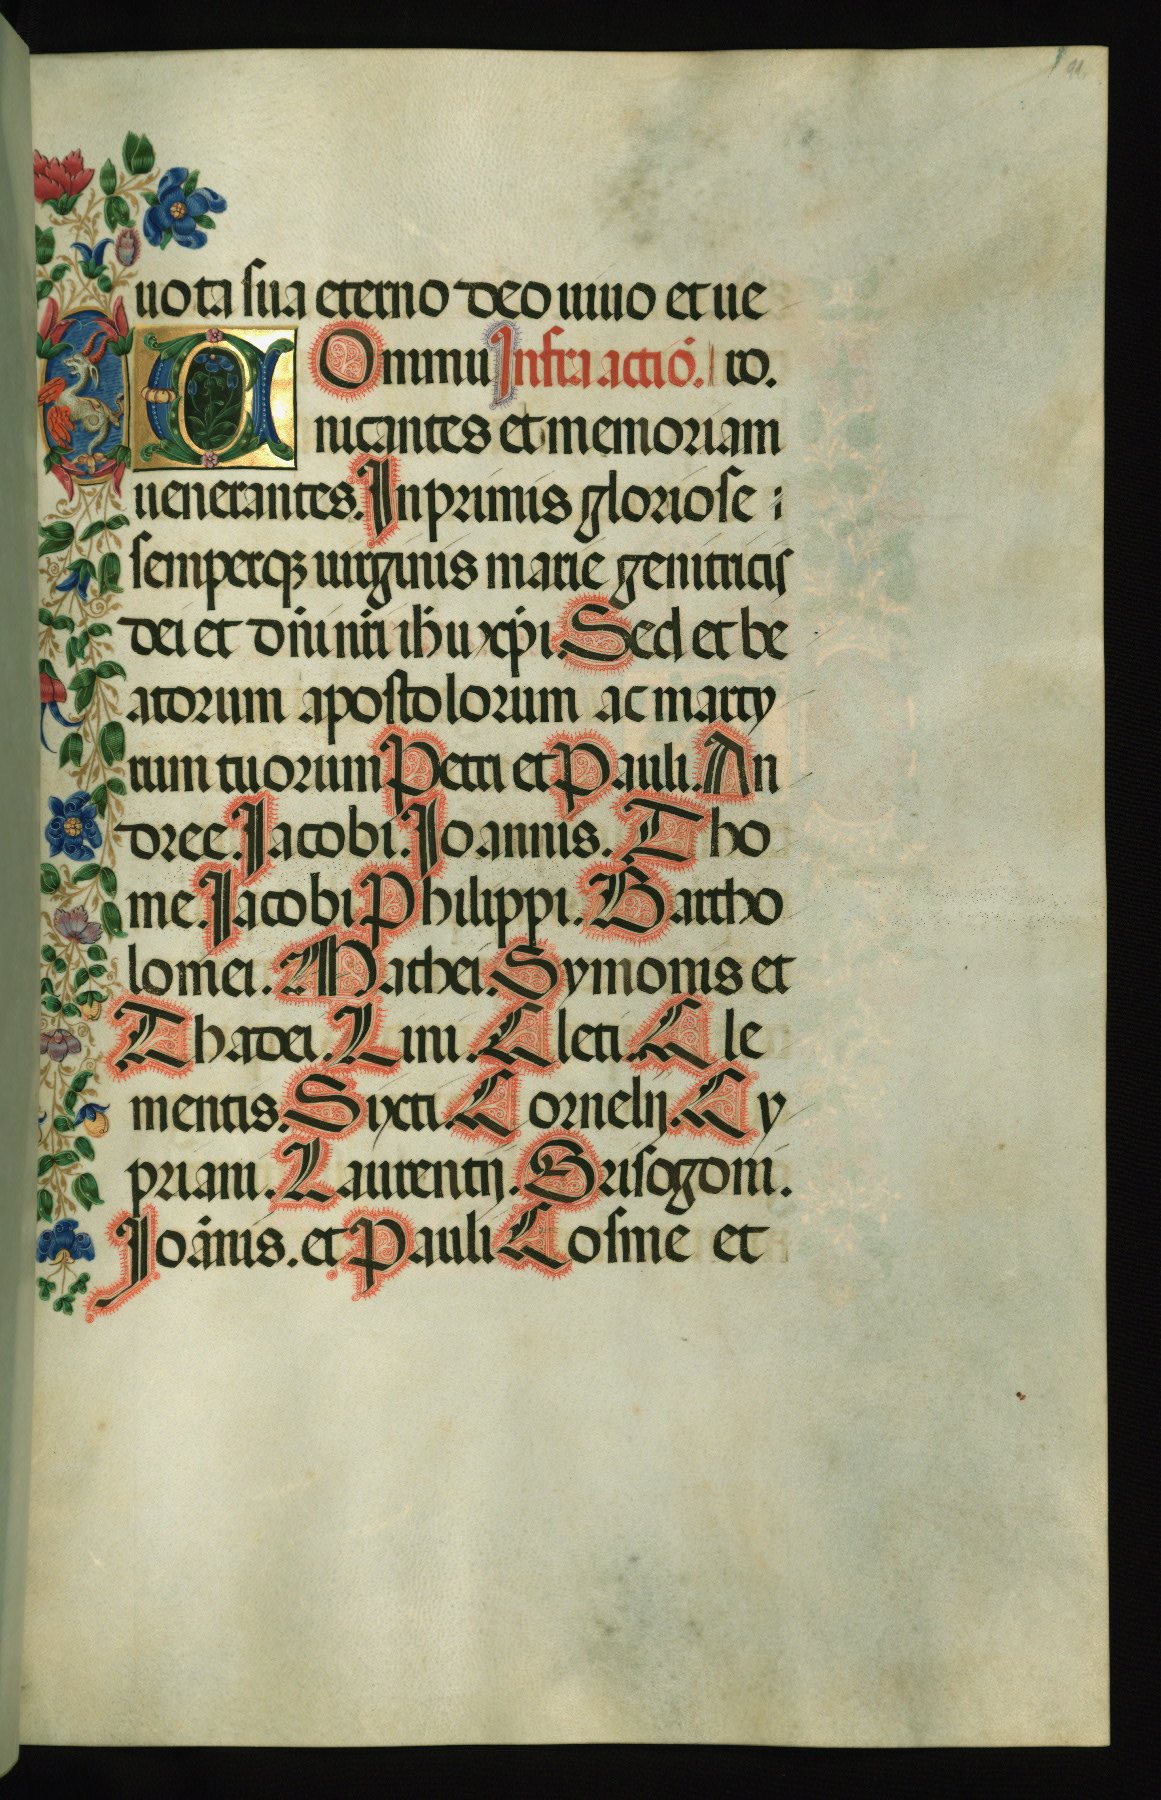 uota sua eterno deo uiuo et ue
ro.
COmmu Infra actiō.
nicantes et memoriam
uenerantes. Inprimis gloriose
semperqꝫ uirginis marie genitricis
dei et dn̄i nr̄i ih̄u xp̄i. Sed et be
atorum apostolorum ac marty
rum tuorum Petri et Pauli. An
dree. Iacobi. Ioannis. Tho
me. Iacobi Philippi. Bartho
lomei. Mathei. Symonis et
Thadei. Lini. Cleti. Cle
mentis. Sixti. Cornelij. Cy
priani. Laurentij. Grisogoni.
Ioānis. et Pauli Cosme et